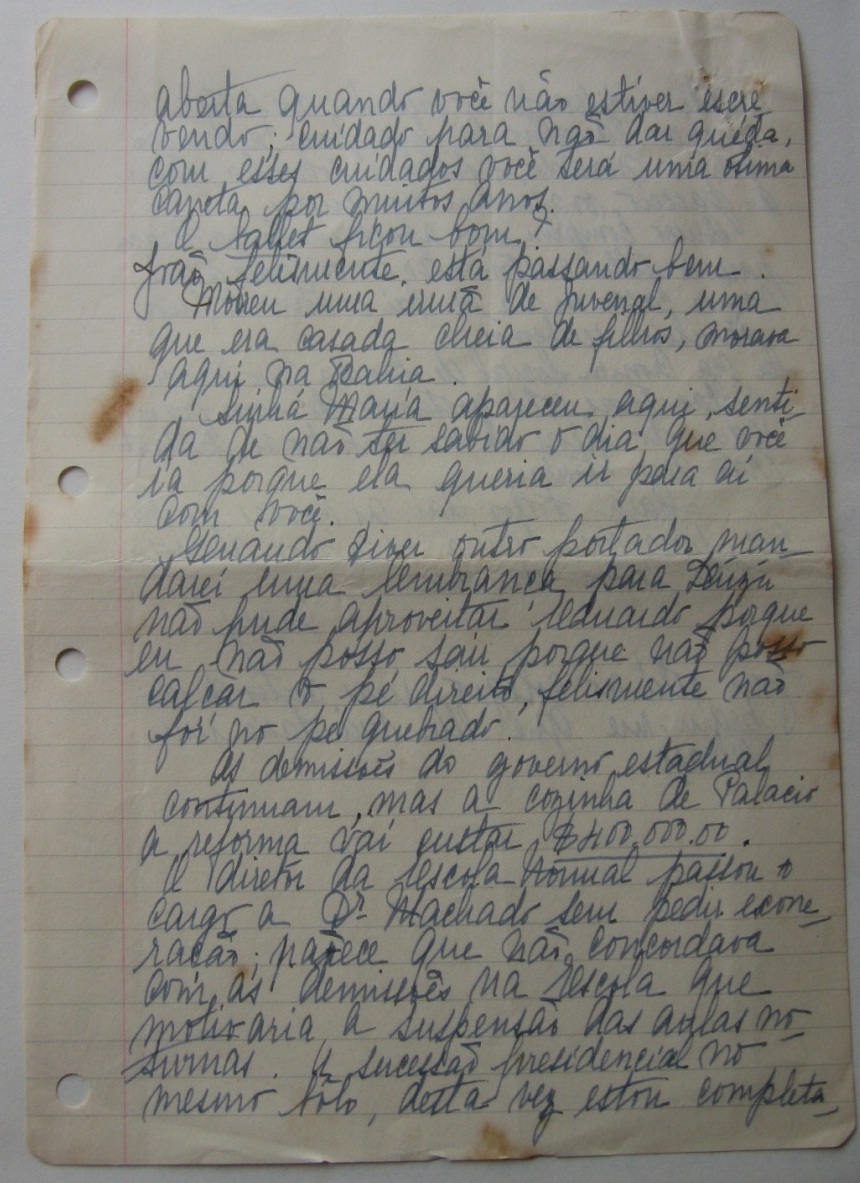 aberta quando você não estiver escre
vendo; cuidado para não dar quéda,
com esses cuidados você será uma ótima
caneta por muitos anos.
O ballet ficou bom?
João felismente, está passando bem.
Morreu uma irmã de Juvenal, uma
que era casada cheia de filhos, morava
aqui na Bahia.
Sinhá Maria apareceu aqui, senti-
da de não ter sabido o dia que você
ia porque ela queria ir para aí
com você.
Quando tiver outro portador man-
darei uma lembrança para
não pude aproveitar Eduardo porque
eu não posso sair porque não posso
calçar o pé direito, felismente não
foi no pé quebrado.
As demissões do governo estadual
continuam, mas a cozinha de Palacio
a reforma vai custar 400.000.00.
O diretor da Escola Normal passou o
cargo a Dr. Machado sem pedir exone-
ração; parece que não concordava
com as demissões na Escola que
motivaria a suspensão das aulas no-
turnas. A sucessão presidencial no
mesmo bôlo, desta vez estou completa-